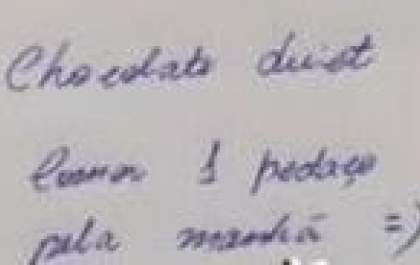 Chocolate diet
Comer 1 pedaço
pela manhã =)